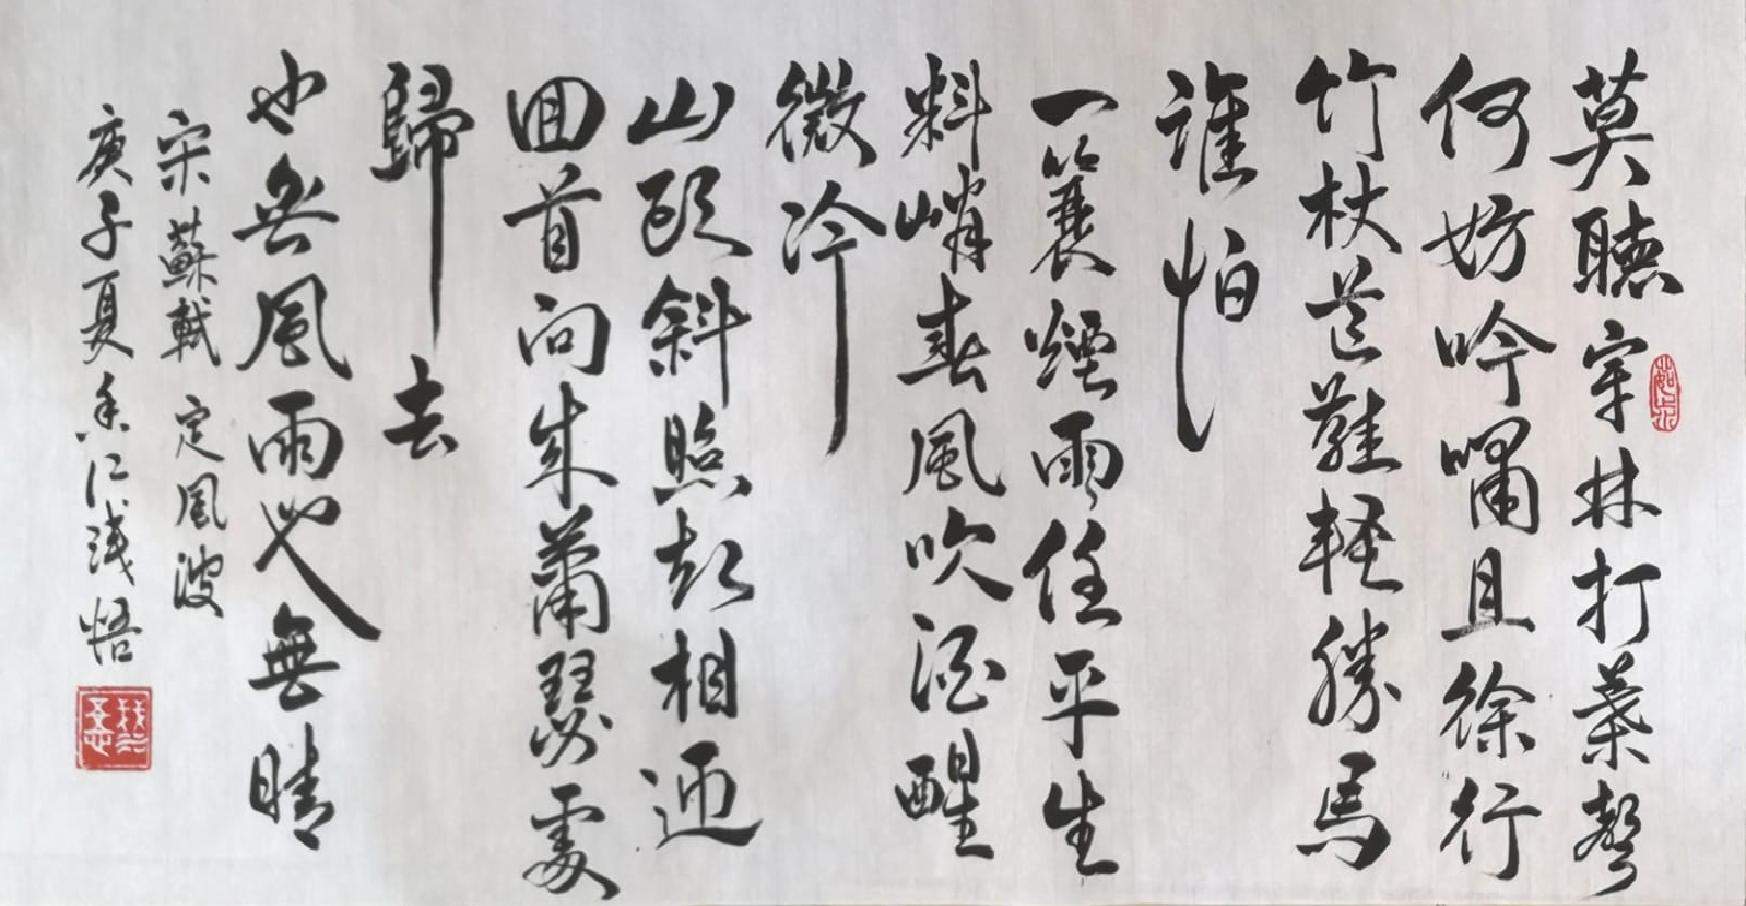 莫聽穿林打葉聲
何妨吟嘯且徐行
竹杖芒鞋輕勝馬
誰怕
一蓑煙雨任平生
料峭春風吹酒醒
微冷
山頭斜照却相迎
回首向來蕭瑟處
歸去
也無風雨也無晴
宋蘇軾 定風波
庚子夏仁淺悟